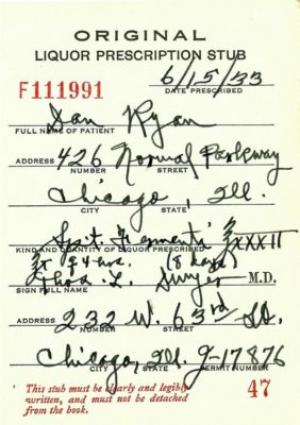 ORIGINAL
LIQUOR PRESCRIPTION STUB
F111991
6/15/33
DATE PRESCRIBED
Dan Ryan
FULL NAME OF PATIENT
ADDRESS 426 Normal Parkway
NUMBER STREET
Chicago, Ill.
CITY STATE,
Spit. Frumenti ℥XXXII
KIND AND QUANTITY OF LIQUOR PRESCRIBED
24 hrs. (8 days)
Thos. L. Dwyer M.D.
SIGN FULL NAME
ADDRESS 232 W. 63rd St.
NUMBER STREET
Chicago, Ill. J-17876
CITY STATE PERMIT NUMBER
This stub must be clearly and legibly
written, and must not be detached
from the book.
47